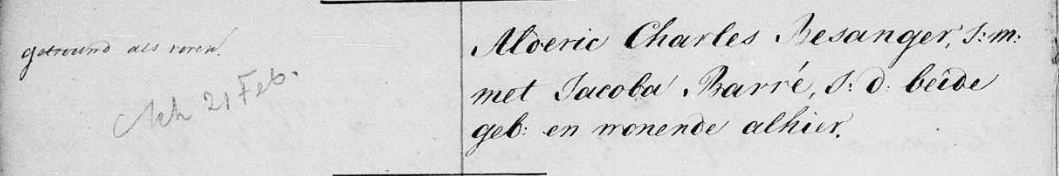 getrouwd als voren.
21 Feb.
Alderic Charles Besanger, J: m:
met Jacoba Barré, J: d: beide
geb: en wonende alhier.